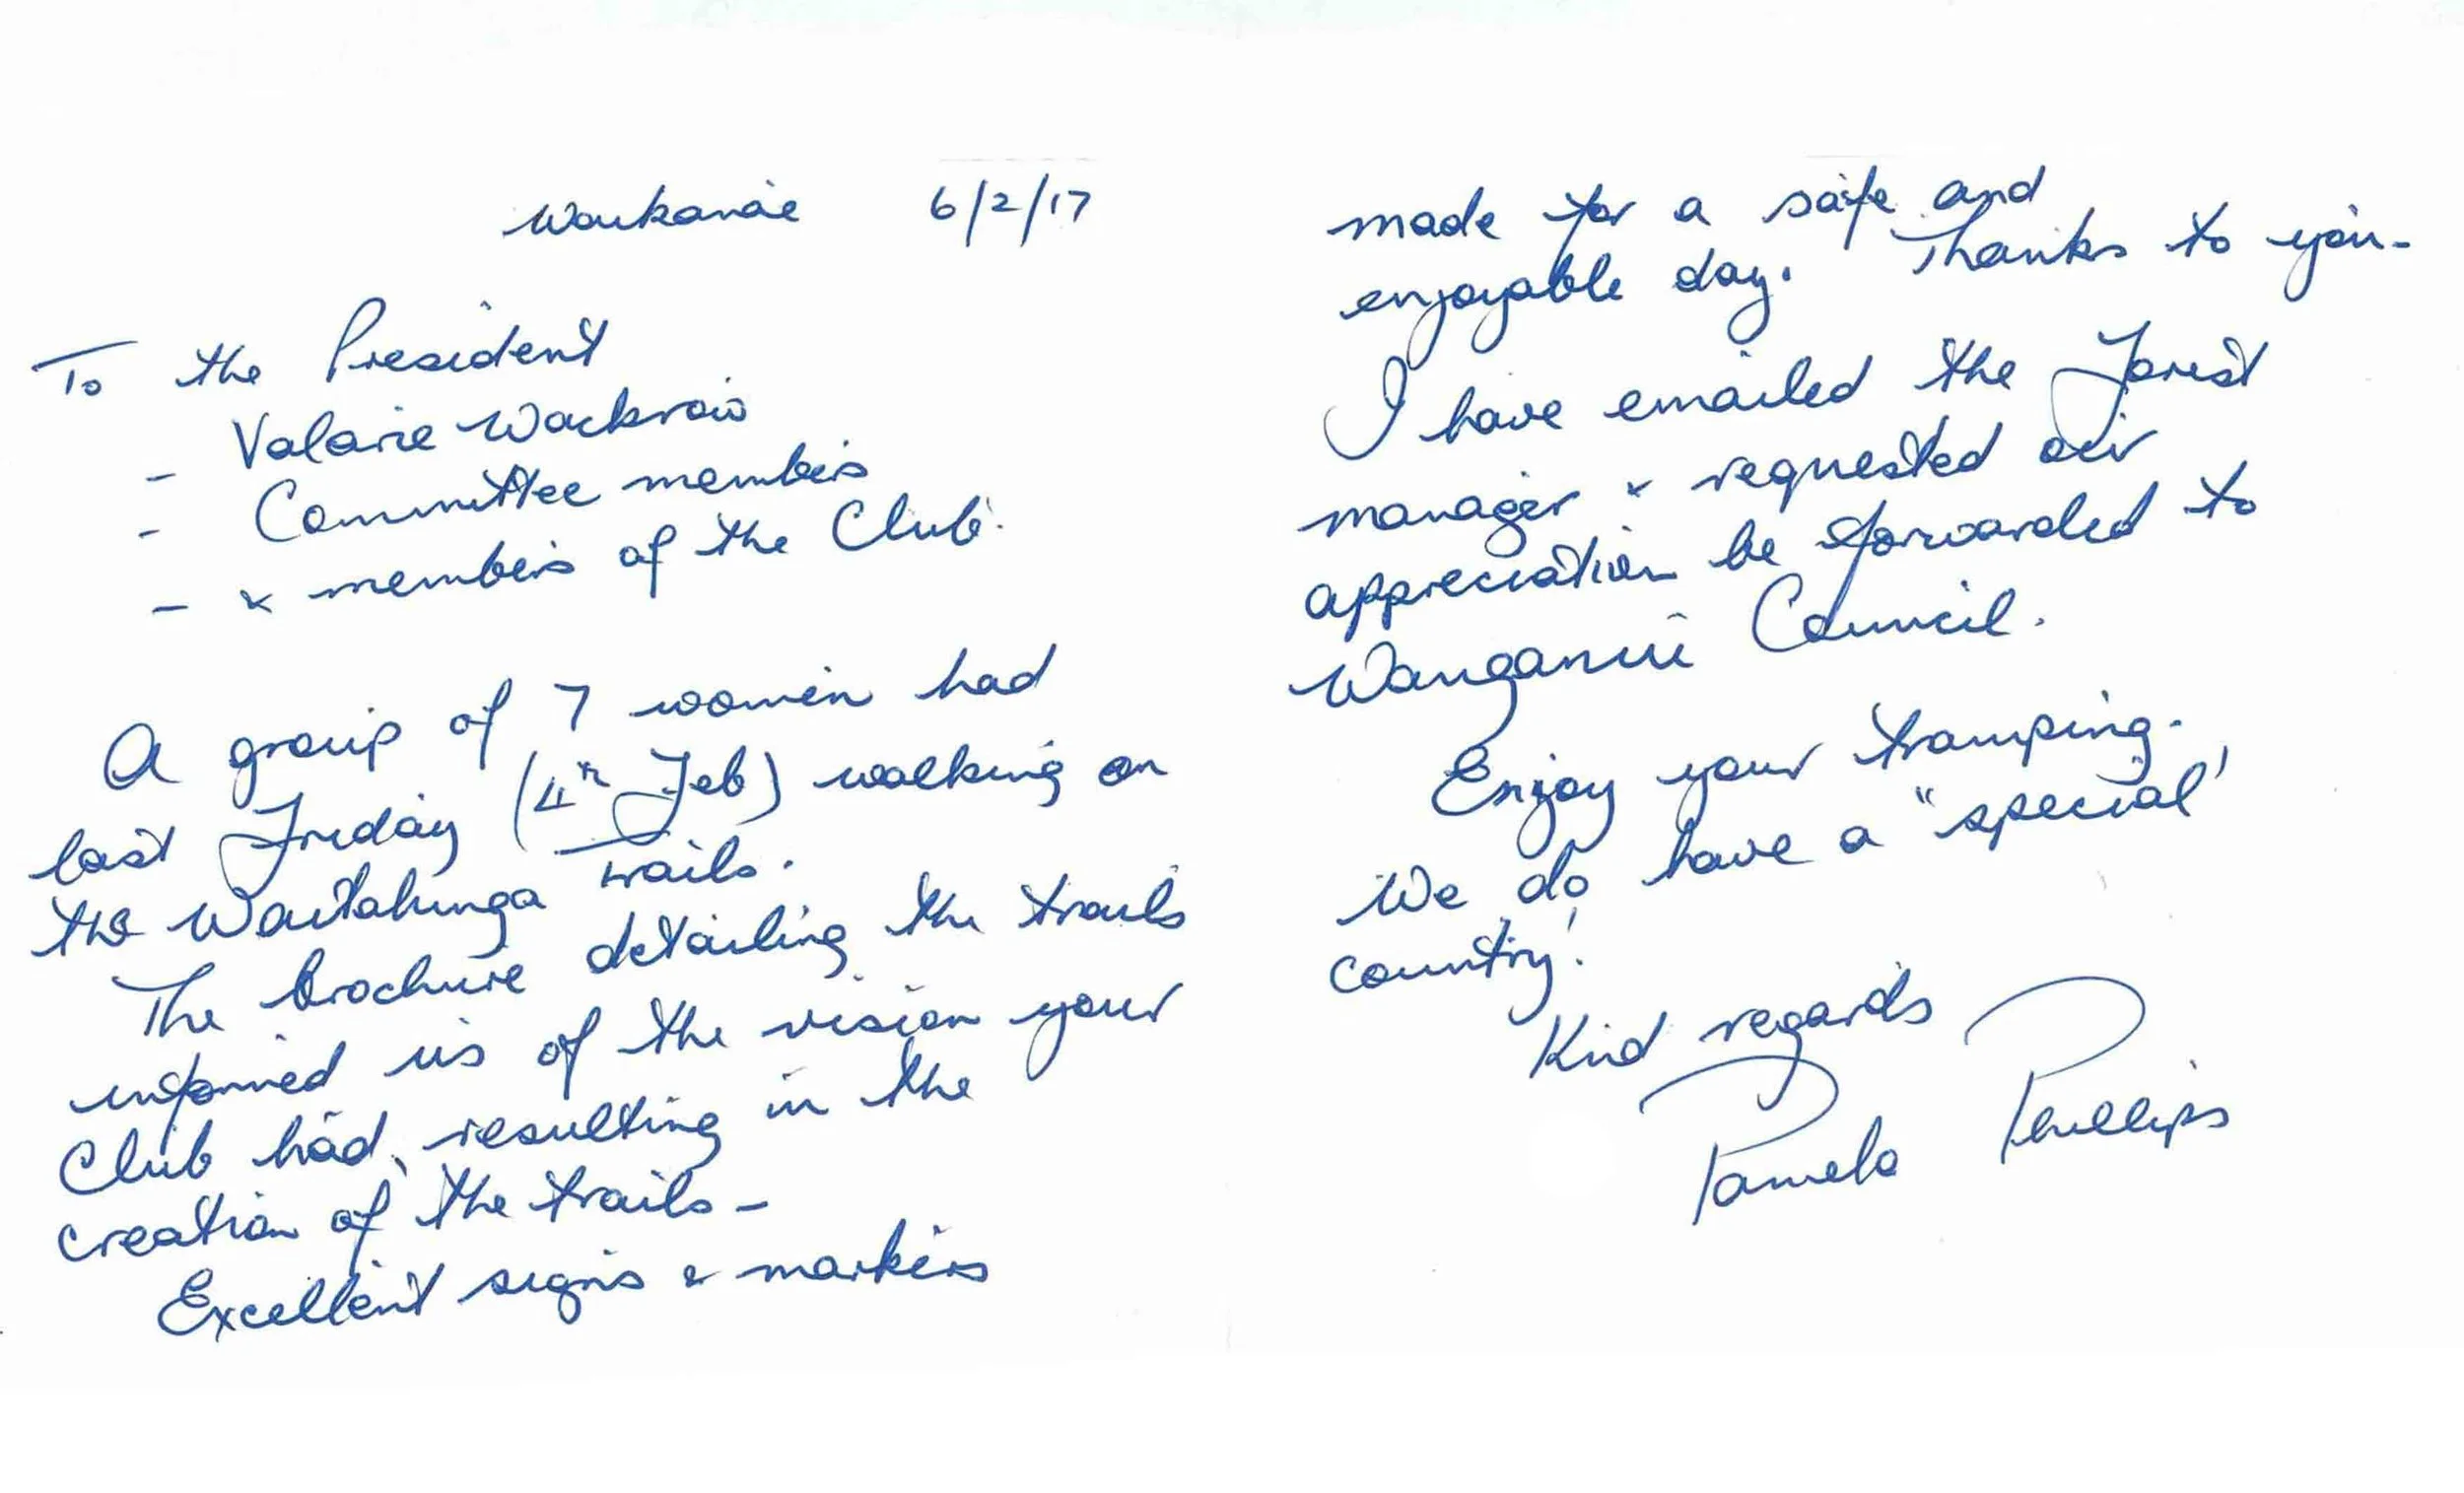 Waikanae 6/2/17
To the President
- Valarie Wackrow
- Committee members
- & members of the Club.
A group of 7 women had
last Friday (4th Feb) walking on
the Waitahinga Trails.
The brochure detailing the trails
informed us of the vision your
Club had, resulting in the
creation of the trails -
Excellent signs & markers
made for a safe and
enjoyable day. Thanks to you -
I have emailed the Forest
manager & requested our
appreciation be forwarded to
Wanganui Council.
Enjoy your tramping.
We do have a "special'
country!
Kind regards
Pamela Phillips